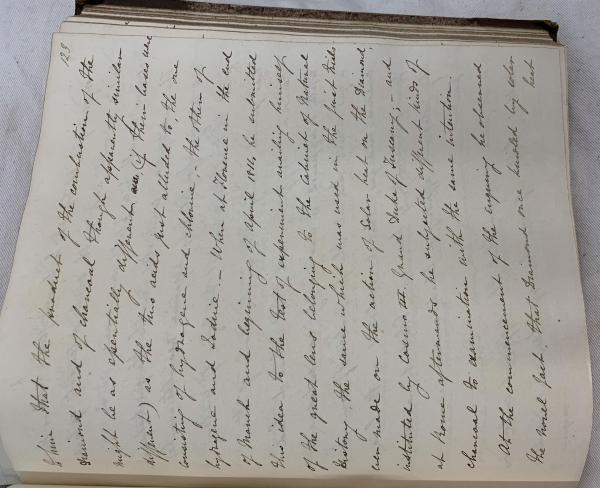 123
him that the product of the combustion of the
diamond and of charcoal though apparently similar
might be as essentially different (if their bases were
different) as the two acids just alluded to, the one
consisting of hydrogene and chlorine, the other of
hydrogene and Iodine. – When at Florence in the end
of March and beginning of April 1814 he submitted
this idea to the test of experiment availing himself
of the great lens belonging to the Cabinet of Natural
History, the same which was used in the first trials
ever made on the action of Solar heat on the Diamond,
instituted by Cosmo III Grand Duke of Tuscany; and
at Rome afterwards he subjected different kinds of
charcoal to examination with the same intention.
At the commencement of the inquiry he observed
the novel fact that Diamond once kindled by solar heat